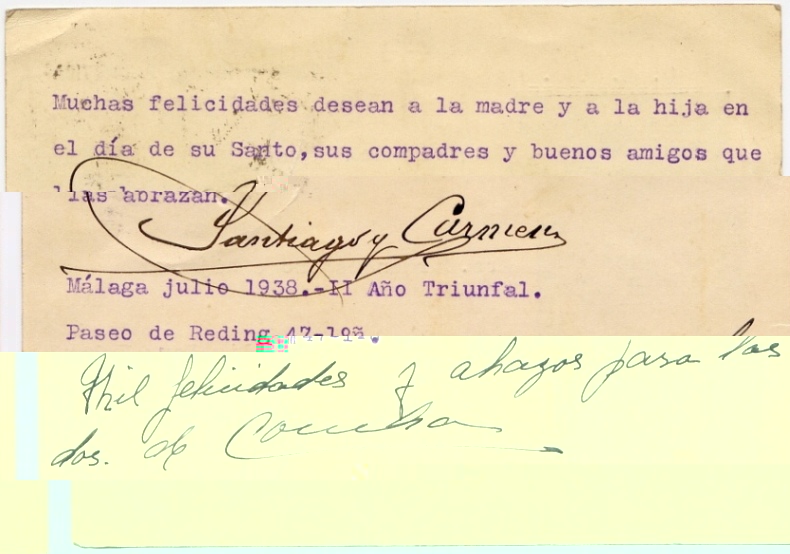 Muchas felicidades desean a la madre y a la hija en
el día de su Santo,sus compadres y buenos amigos que
las abrazan.
Santiago y Carmen
Málaga julio 1938.-II Año Triunfal.
Paseo de Reding 47-1º
Mil felicidades y abazos para las
dos. de Concha